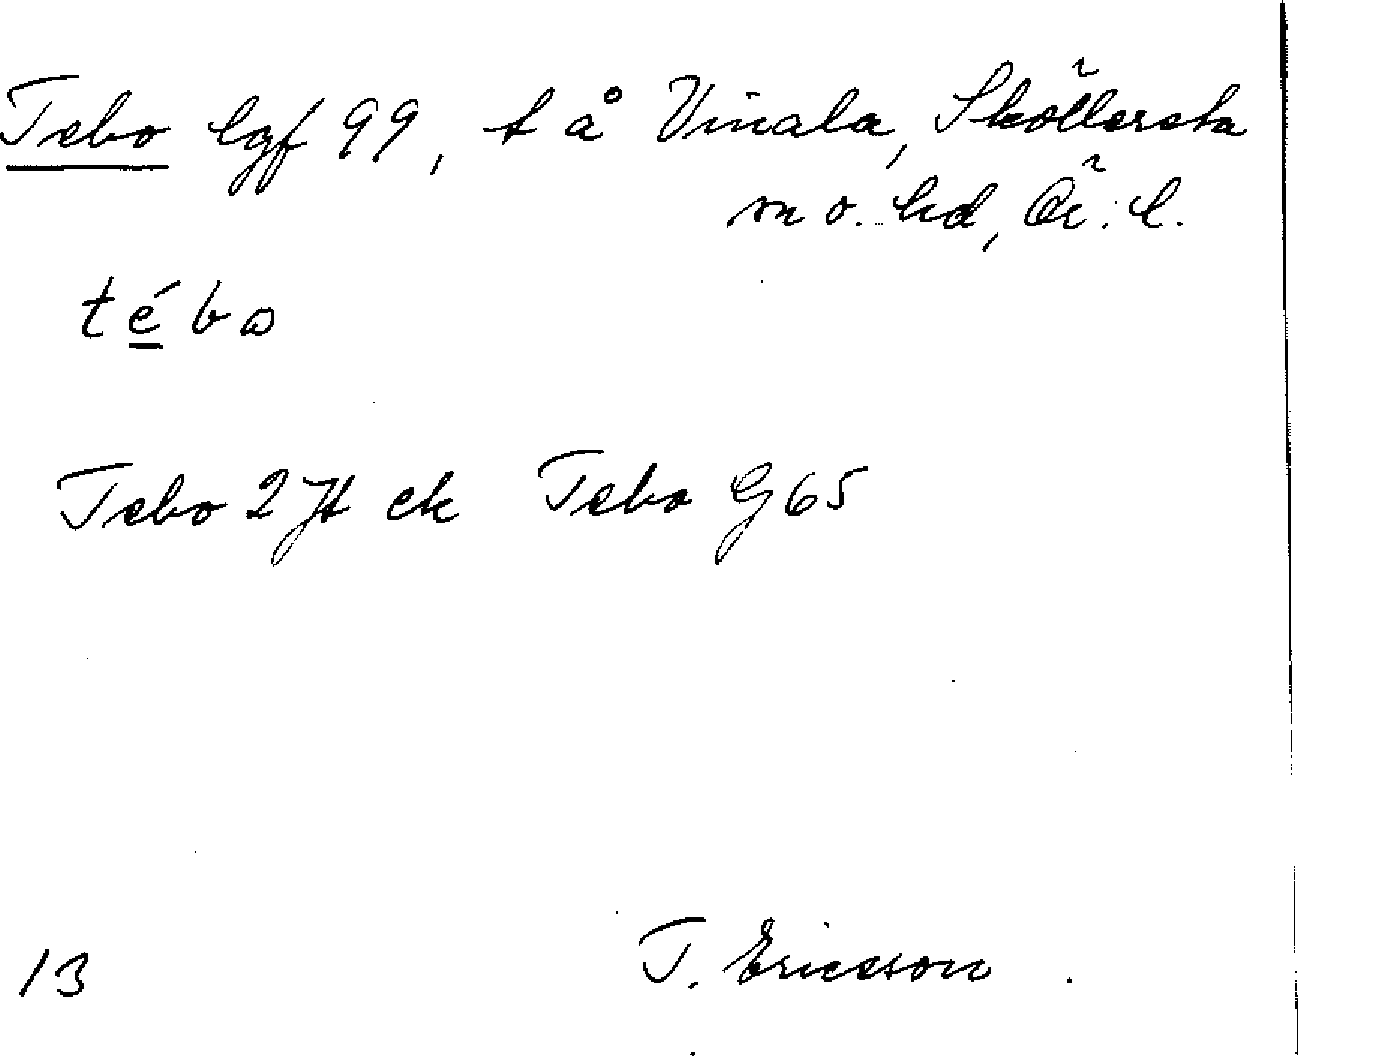 Tebo lgf 99, t å Vinala, Sköllersta
sn o. hd, Ör. l.
tébω
Tebo 2 Jt ek Tebo G65
13 T. Ericsson